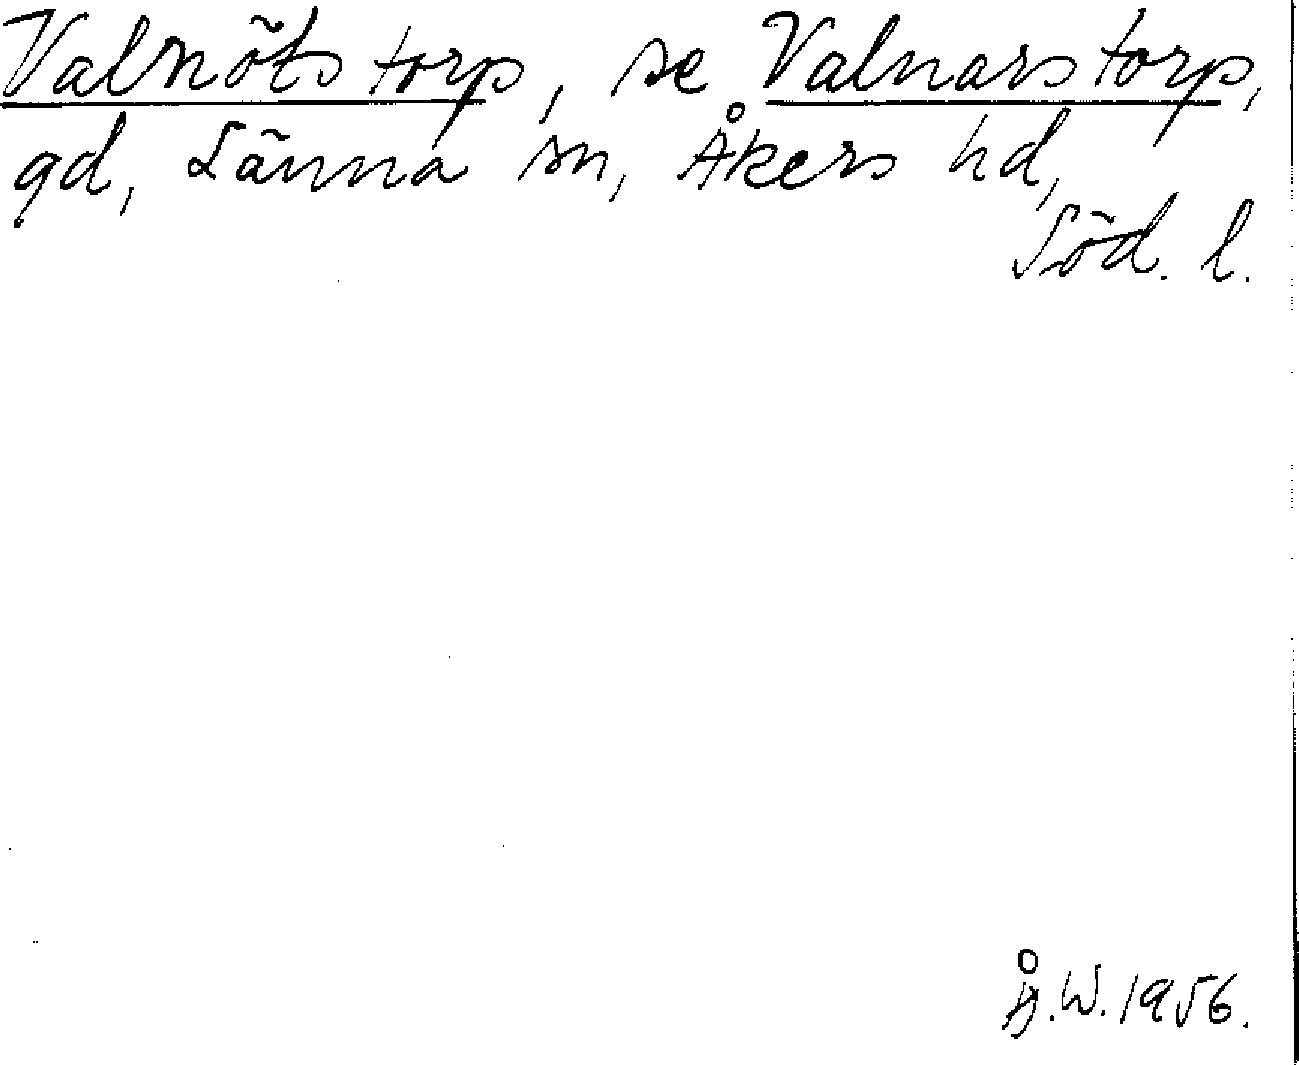 Valnötstorp, se Valnarstorp,
gd, Länna sn, Åkers hd,
Söd. l.
Å.W. 1956.